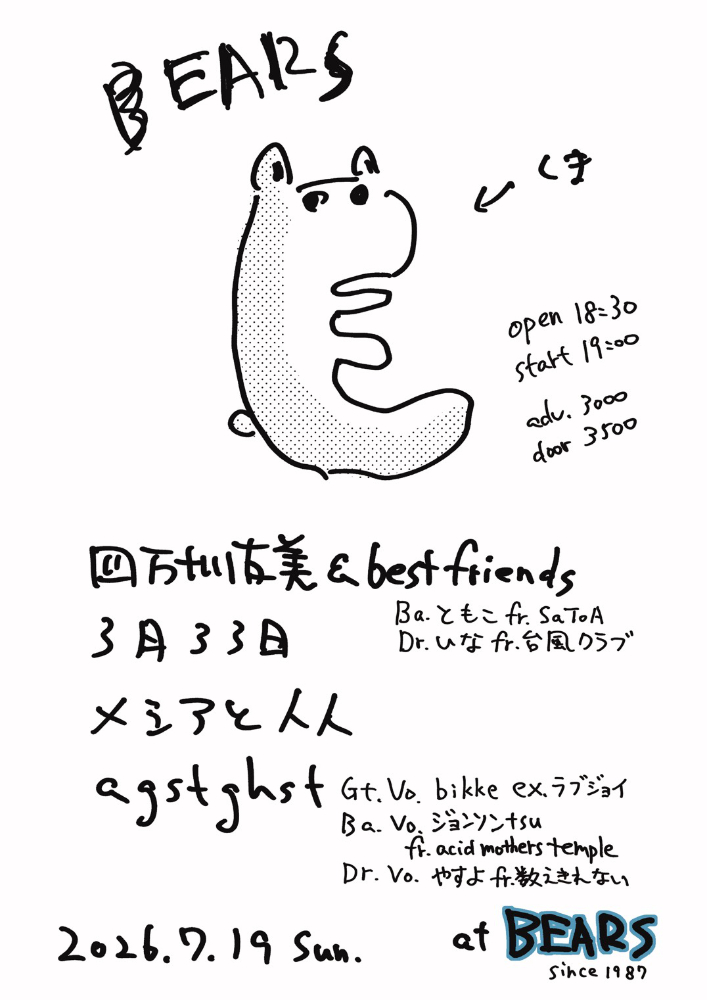 BEARS
くま
open 18:30
start 19:00
adv. 3000
door 3500
四万川友美 & best friends
Ba. ともこ fr. SaToA
Dr. ひな fr. 台風クラブ
3月33日
メシアと人人
agstghst
Gt. Vo. bikke ex. ラブジョイ
Ba. Vo. ジョンソンtsu
fr. acid mothers temple
Dr. Vo. やすよ fr. 数えきれない
2026.7.19 Sun.
at BEARS
since 1987